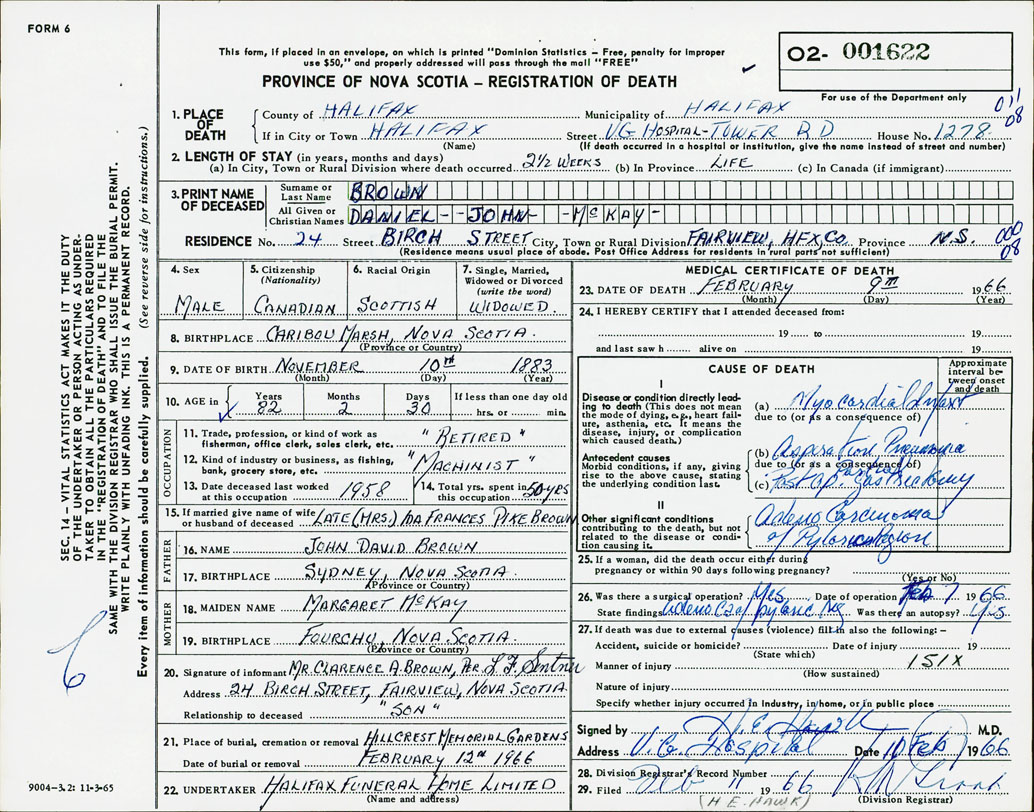 FORM 6
This form, if placed in an envelope, on which is printed "Dominion Statistics – Free, penalty for improper
use $50," and properly addressed will pass through the mail "FREE"
PROVINCE OF NOVA SCOTIA – REGISTRATION OF DEATH
02- 001622
For use of the Department only
011
08
1. PLACE OF DEATH
County of HALIFAX Municipality of HALIFAX
If in City or Town HALIFAX Street VG HOSPITAL-TOWER RD House No. 1278
(Name) (If death occurred in a hospital or institution, give the name instead of street and number)
2. LENGTH OF STAY (in years, months and days)
(a) In City, Town or Rural Division where death occurred 2½ WEEKS (b) In Province LIFE (c) In Canada (if immigrant)
3. PRINT NAME OF DECEASED
Surname or Last Name BROWN
All Given or Christian Names DANIEL - JOHN - McKAY -
RESIDENCE No. 24 Street BIRCH STREET City, Town or Rural Division FAIRVIEW, HFX.CO. Province N.S.
000
08
(Residence means usual place of abode. Post Office Address for residents in rural parts not sufficient)
4. Sex
MALE
5. Citizenship (Nationality)
CANADIAN
6. Racial Origin
SCOTTISH
7. Single, Married, Widowed or Divorced (write the word)
WIDOWED
8. BIRTHPLACE CARIBOU MARSH, NOVA SCOTIA
(Province or Country)
9. DATE OF BIRTH NOVEMBER 10TH 1883
(Month) (Day) (Year)
10. AGE in Years Months Days If less than one day old
82 2 30 hrs. or min.
OCCUPATION
11. Trade, profession, or kind of work as fisherman, office clerk, sales clerk, etc. "RETIRED"
12. Kind of industry or business, as fishing, bank, grocery store, etc. "MACHINIST"
13. Date deceased last worked at this occupation 1958
14. Total yrs. spent in this occupation 50 yrs
15. If married give name of wife or husband of deceased LATE (MRS.) IDA FRANCES PIKE BROWN
FATHER
16. NAME JOHN DAVID BROWN
17. BIRTHPLACE SYDNEY, NOVA SCOTIA
(Province or Country)
MOTHER
18. MAIDEN NAME MARGARET McKAY
19. BIRTHPLACE FOURCHU, NOVA SCOTIA
(Province or Country)
20. Signature of informant MR. CLARENCE A. BROWN, PER.
Address 24 BIRCH STREET, FAIRVIEW, NOVA SCOTIA
Relationship to deceased "SON"
21. Place of burial, cremation or removal HILLCREST MEMORIAL GARDENS
Date of burial or removal FEBRUARY 12TH 1966
22. UNDERTAKER HALIFAX FUNERAL HOME LIMITED
(Name and address)
MEDICAL CERTIFICATE OF DEATH
23. DATE OF DEATH FEBRUARY 9TH 1966
(Month) (Day) (Year)
24. I HEREBY CERTIFY that I attended deceased from:
19 to 19
and last saw h alive on 19
CAUSE OF DEATH
Approximate interval between onset and death
I
Disease or condition directly leading to death (This does not mean the mode of dying, e.g., heart failure, asthenia, etc. It means the disease, injury, or complication which caused death.)
(a) Myocardial Infarct
due to (or as a consequence of)
Antecedent causes
Morbid conditions, if any, giving rise to the above cause, stating the underlying condition last.
(b) Aspiration Pneumonia
due to (or as a consequence of)
(c) Post Op. Partial Gastrectomy
II
Other significant conditions
contributing to the death, but not related to the disease or condition causing it.
Adeno Carcinoma
of Pyloric Region
25. If a woman, did the death occur either during
pregnancy or within 90 days following pregnancy?
(Yes or No)
26. Was there a surgical operation? Yes Date of operation Feb 7 1966
State findings adeno Ca of pyloric Was there an autopsy? Yes
27. If death was due to external causes (violence) fill in also the following: –
Accident, suicide or homicide? Date of injury 19
(State which)
Manner of injury 151X
(How sustained)
Nature of injury
Specify whether injury occurred in industry, in home, or in public place
Signed by H.E. M.D.
Address V.G. Hospital Date 10 Feb 1966
28. Division Registrar's Record Number
29. Filed Feb 11 1966
(H E HAWK) (Division Registrar)
SEC. 14 – VITAL STATISTICS ACT MAKES IT THE DUTY
OF THE UNDERTAKER OR PERSON ACTING AS UNDER-
TAKER TO OBTAIN ALL THE PARTICULARS REQUIRED
IN THE "REGISTRATION OF DEATH" AND TO FILE THE
SAME WITH THE DIVISION REGISTRAR WHO SHALL ISSUE THE BURIAL PERMIT.
WRITE PLAINLY WITH UNFADING INK. THIS IS A PERMANENT RECORD.
Every item of information should be carefully supplied. (See reverse side for instructions.)
6
9004-3.2: 11-3-65